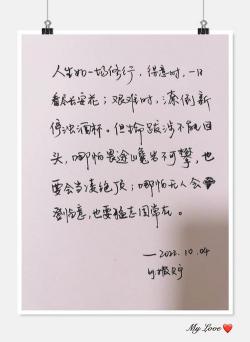 人生如一场修行，得意时，一日
看尽长安花；艰难时，潦倒新
停浊酒杯。但命跋涉不能回
头，哪怕畏途巉岩不可攀，也
要会当凌绝顶；哪怕无人会
意，也要猛志固常在。
—2022.10.04
by.
My Love ❤️